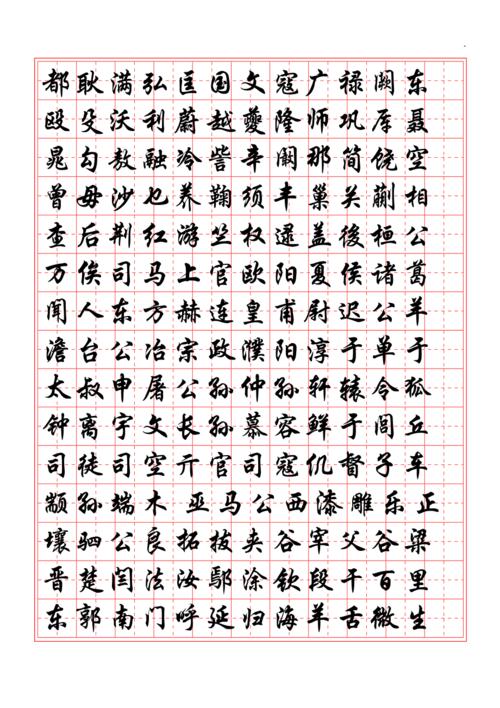 都耿满弘匡国文寇广禄阙东
殴殳沃利蔚越夔隆师巩厍聂
晁勾敖融冷訾辛阚那简饶空
曾毋沙乜养鞠须丰巢关蒯相
查后荆红游竺权逯盖後桓公
万俟司马上官欧阳夏侯诸葛
闻人东方赫连皇甫尉迟公羊
澹台公冶宗政濮阳淳于单于
太叔申屠公孙仲孙轩辕令狐
钟离宇文长孙慕容鲜于闾丘
司徒司空亓官司寇仉督子车
颛孙端木亚马公西漆雕乐正
壤驷公良拓拔夹谷宰父谷梁
晋楚闫法汝鄢涂钦段干百里
东郭南门呼延归海羊舌微生